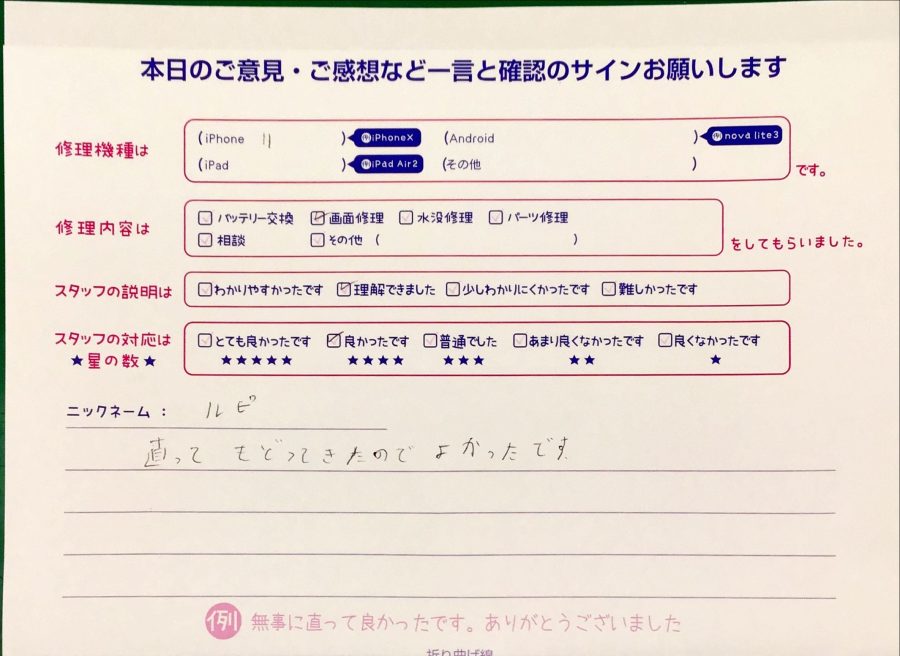 本日のご意見・ご感想など一言と確認のサインお願いします
修理機種は (iPhone 11 ) 例iPhoneX (Android ) 例nova lite3
(iPad ) 例iPad Air2 (その他 ) です。
修理内容は バッテリー交換 画面修理 水没修理 パーツ修理
相談 その他 ( ) をしてもらいました。
スタッフの説明は わかりやすかったです 理解できました 少しわかりにくかったです 難しかったです
スタッフの対応は とても良かったです 良かったです 普通でした あまり良くなかったです 良くなかったです
★星の数★ ★★★★★ ★★★★ ★★★ ★★ ★
ニックネーム: ルビ
直って もどってきたので よかったです
例 無事に直って良かったです。ありがとうございました
折り曲げ線